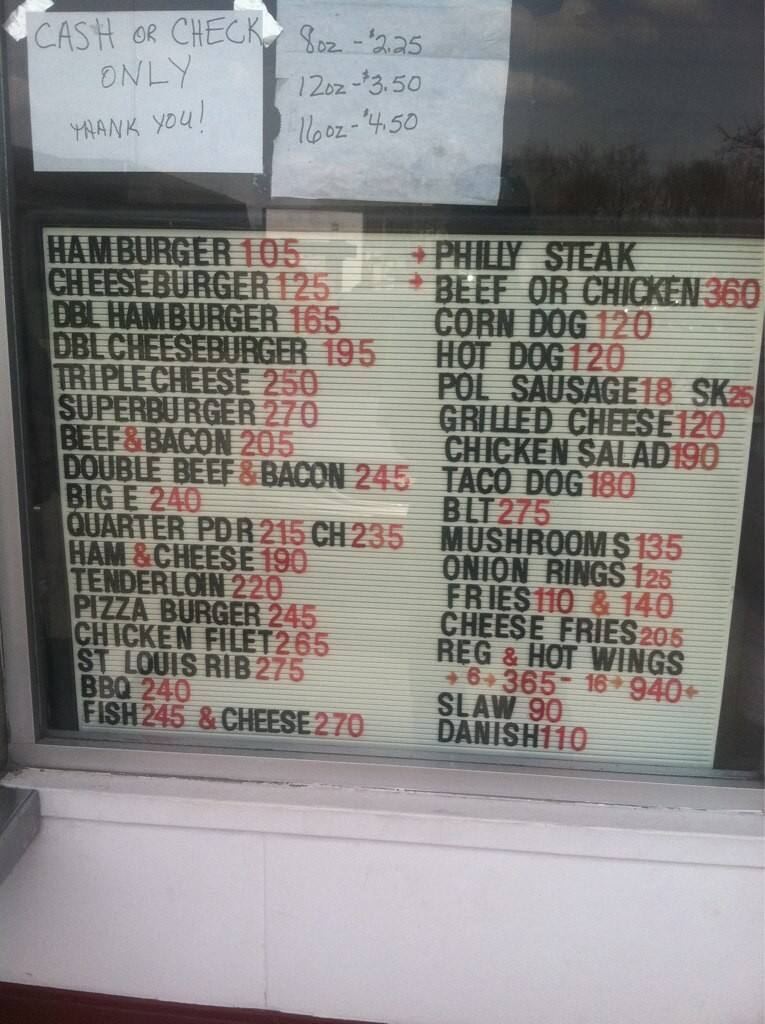 CASH OR CHECK
ONLY
THANK YOU!
8oz - $2.25
12oz - $3.50
16oz - $4.50
HAMBURGER 105
CHEESEBURGER 125
DBL HAMBURGER 165
DBL CHEESEBURGER 195
TRIPLE CHEESE 250
SUPERBURGER 270
BEEF & BACON 205
DOUBLE BEEF & BACON 245
BIG E 240
QUARTER PDR 215 CH 235
HAM & CHEESE 190
TENDERLOIN 220
PIZZA BURGER 245
CHICKEN FILET 265
ST LOUIS RIB 275
BBQ 240
FISH 245 & CHEESE 270
PHILLY STEAK
BEEF OR CHICKEN 360
CORN DOG 120
HOT DOG 120
POL SAUSAGE 18 SK 25
GRILLED CHEESE 120
CHICKEN SALAD 190
TACO DOG 180
BLT 275
MUSHROOMS 135
ONION RINGS 125
FRIES 110 & 140
CHEESE FRIES 205
REG & HOT WINGS
6 365 - 16 940
SLAW 90
DANISH 110